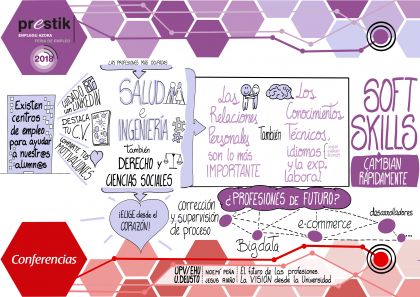 prestik
EMPLEGU AZOKA
FERIA DE EMPLEO
2018
LAS PROFESIONES MÁS OCUPADAS
Existen
centros
de empleo
para ayudar
a nuestr@s
alumn@s
USANDO
LINKEDIN
DESTACA
TU C.V.
MOTIVACIONES
SALUD
e
INGENIERÍA
también
DERECHO y
CIENCIAS SOCIALES
¡ELIGE desde el
CORAZÓN!
Las
Relaciones
Personales
son lo más
IMPORTANTE
También
Los
Conocimientos
Técnicos,
idiomas
y la exp.
laboral
SOFT
SKILLS
CAMBIAN
RÁPIDAMENTE
¿PROFESIONES DE FUTURO?
corrección
y supervisión
de proceso
Bigdata
e-commerce
desarrolladores
Conferencias
UPV/EHU NOEMÍ PEÑA El futuro de las profesiones.
U.DEUSTO JESUS RIAÑO La VISIÓN desde la Universidad